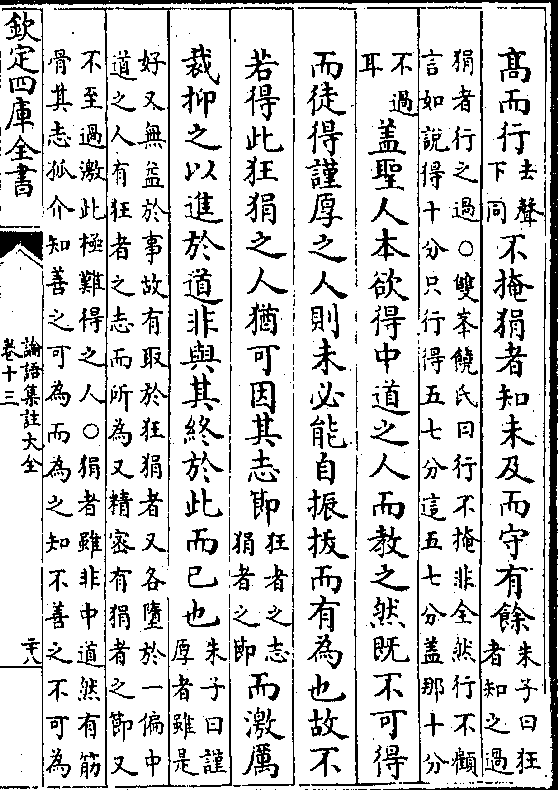 髙而行去聲下同不掩狷者知未及而守有餘朱子曰狂者知之過
狷者行之過○雙峯饒氏曰行不掩非全然行不顧
言如說得十分只行得五七分這五七分盖那十分
不過耳盖聖人本欲得中道之人而教之然既不可得
而徒得謹厚之人則未必能自振拔而有為也故不
若得此狂狷之人猶可因其志節狂者之志狷者之節而激厲
裁抑之以進於道非與其終於此而已也朱子曰謹厚者雖是
好又無益於事故有取於狂狷者又各墮於一偏中
道之人有狂者之志而所為又精密有狷者之節又
不至過激此極難得之人○狷者雖非中道然有筋
骨其志孤介知善之可為而為之知不善之不可為
欽定四庫全書
論語集註大全
卷十三
二十八